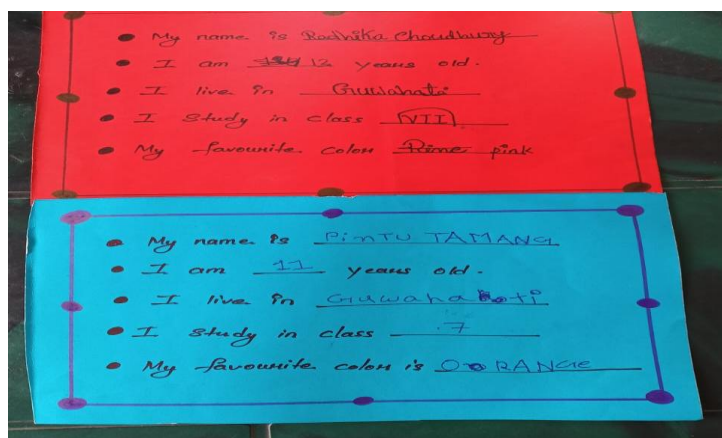 My name is Radhika Choudhury
I am 12 years old.
I live in Guwahati
I Study in class VII
My favourite color pink
My name is PinTU TAMANG
I am 11 years old.
I live in Guwahati
I Study in class 7
My favourite color is ORANGE